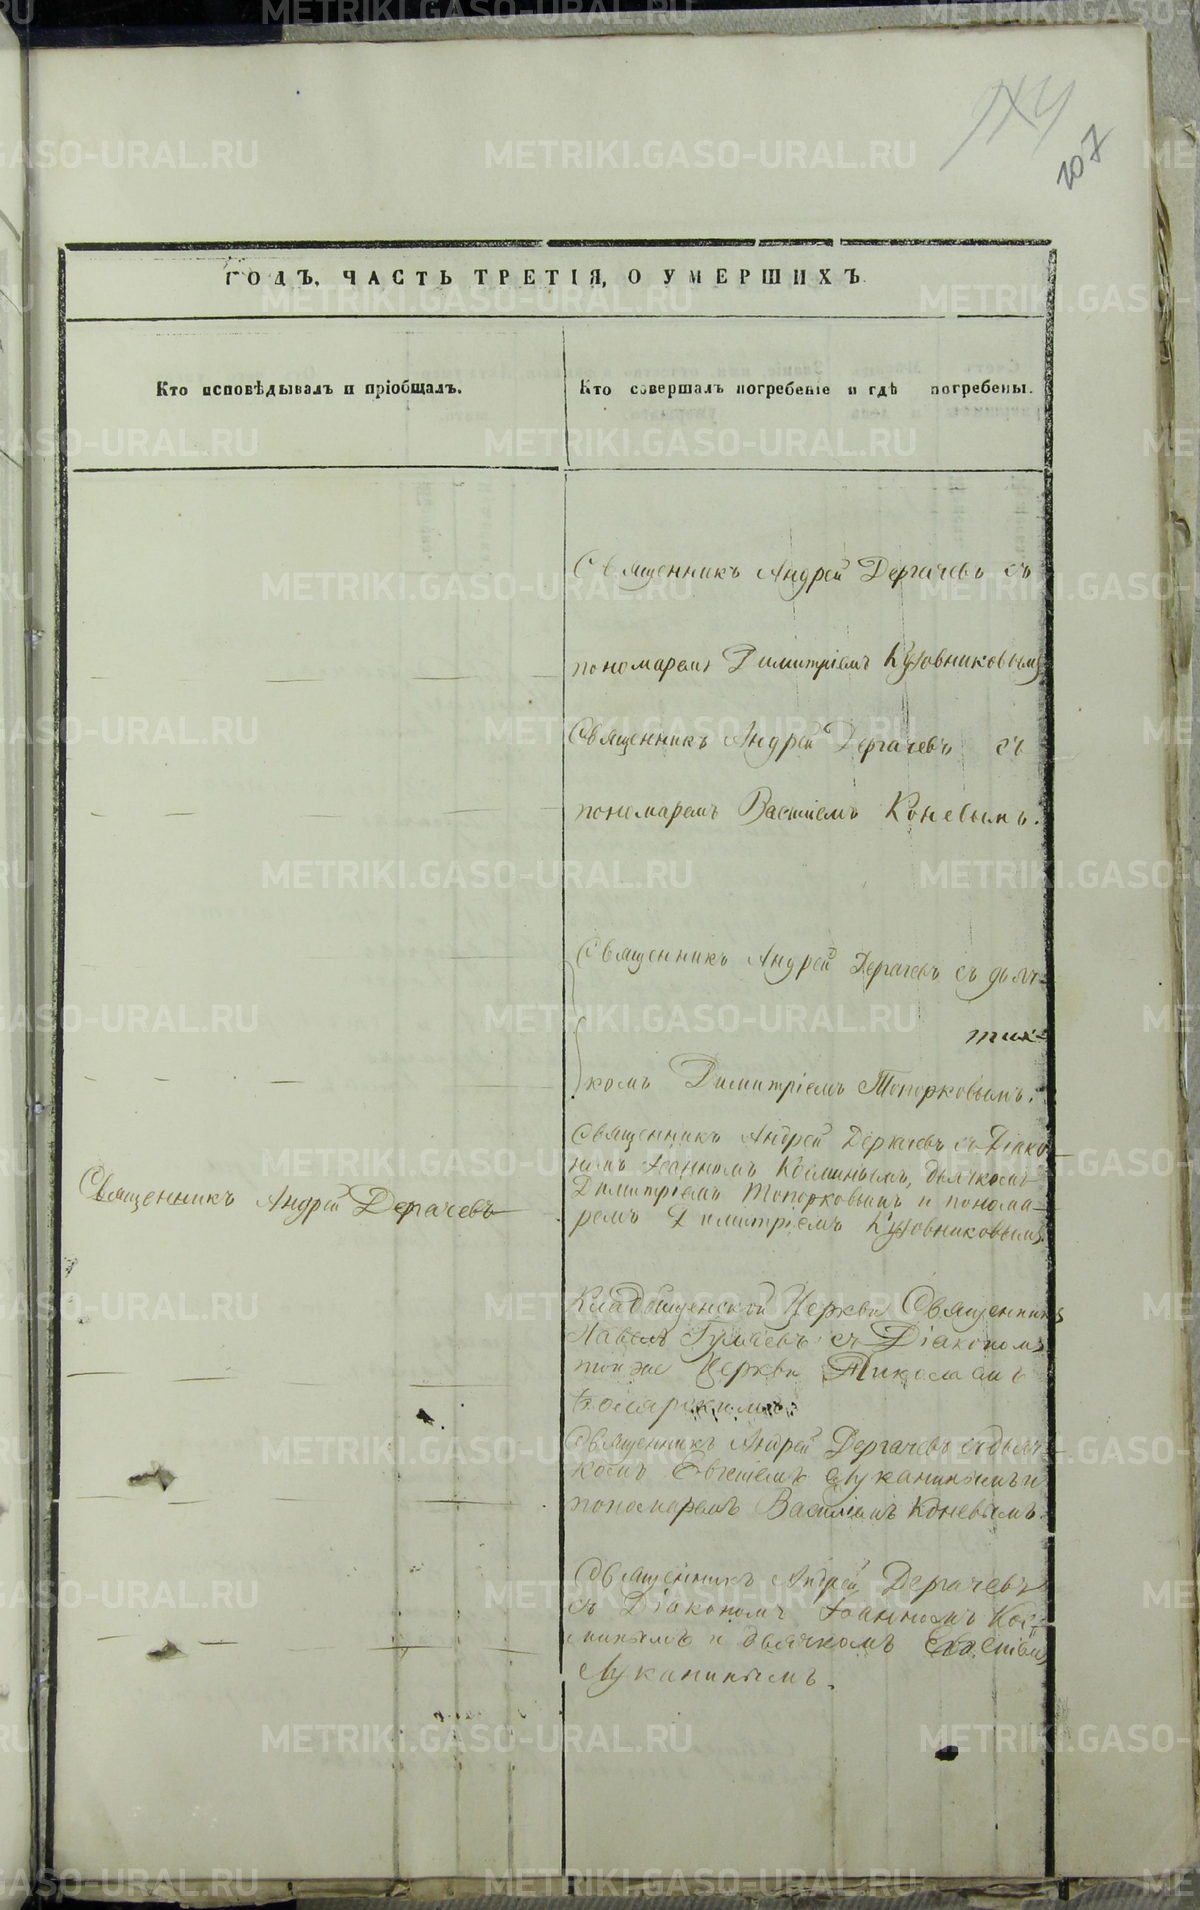 107
ГОДЪ, ЧАСТЬ ТРЕТІЯ, О УМЕРШИХЪ
Кто исповѣдывалъ и пріобщалъ.
Кто совершалъ погребеніе и гдѣ погребены.
Священникъ Андрей Дергачевъ съ
пономаремъ Димитріемъ Кузовниковымъ
Священникъ Андрей Дергачевъ съ
пономаремъ Василіемъ Коневымъ.
Священникъ Андрей Дергачевъ съ дьяч-
комъ Димитріемъ Топорковымъ.
Священникъ Андрей Дергачевъ
Священникъ Андрей Дергачевъ съ Діако-
номъ Іоанномъ дьячкомъ
Димитріемъ Топорковымъ и понома-
ремъ Димитріемъ Кузовниковымъ
Кладбищенской Церкви Священникъ
Павелъ съ Діакономъ
той же Церкви Николаемъ
Священникъ Андрей Дергачевъ съ дьяч-
комъ Луканинымъ и
пономаремъ Василіемъ Коневымъ.
Священникъ Андрей Дергачевъ
съ Діакономъ Іоанномъ
и дьячкомъ
Луканинымъ.
METRIKI.GASO-URAL.RU